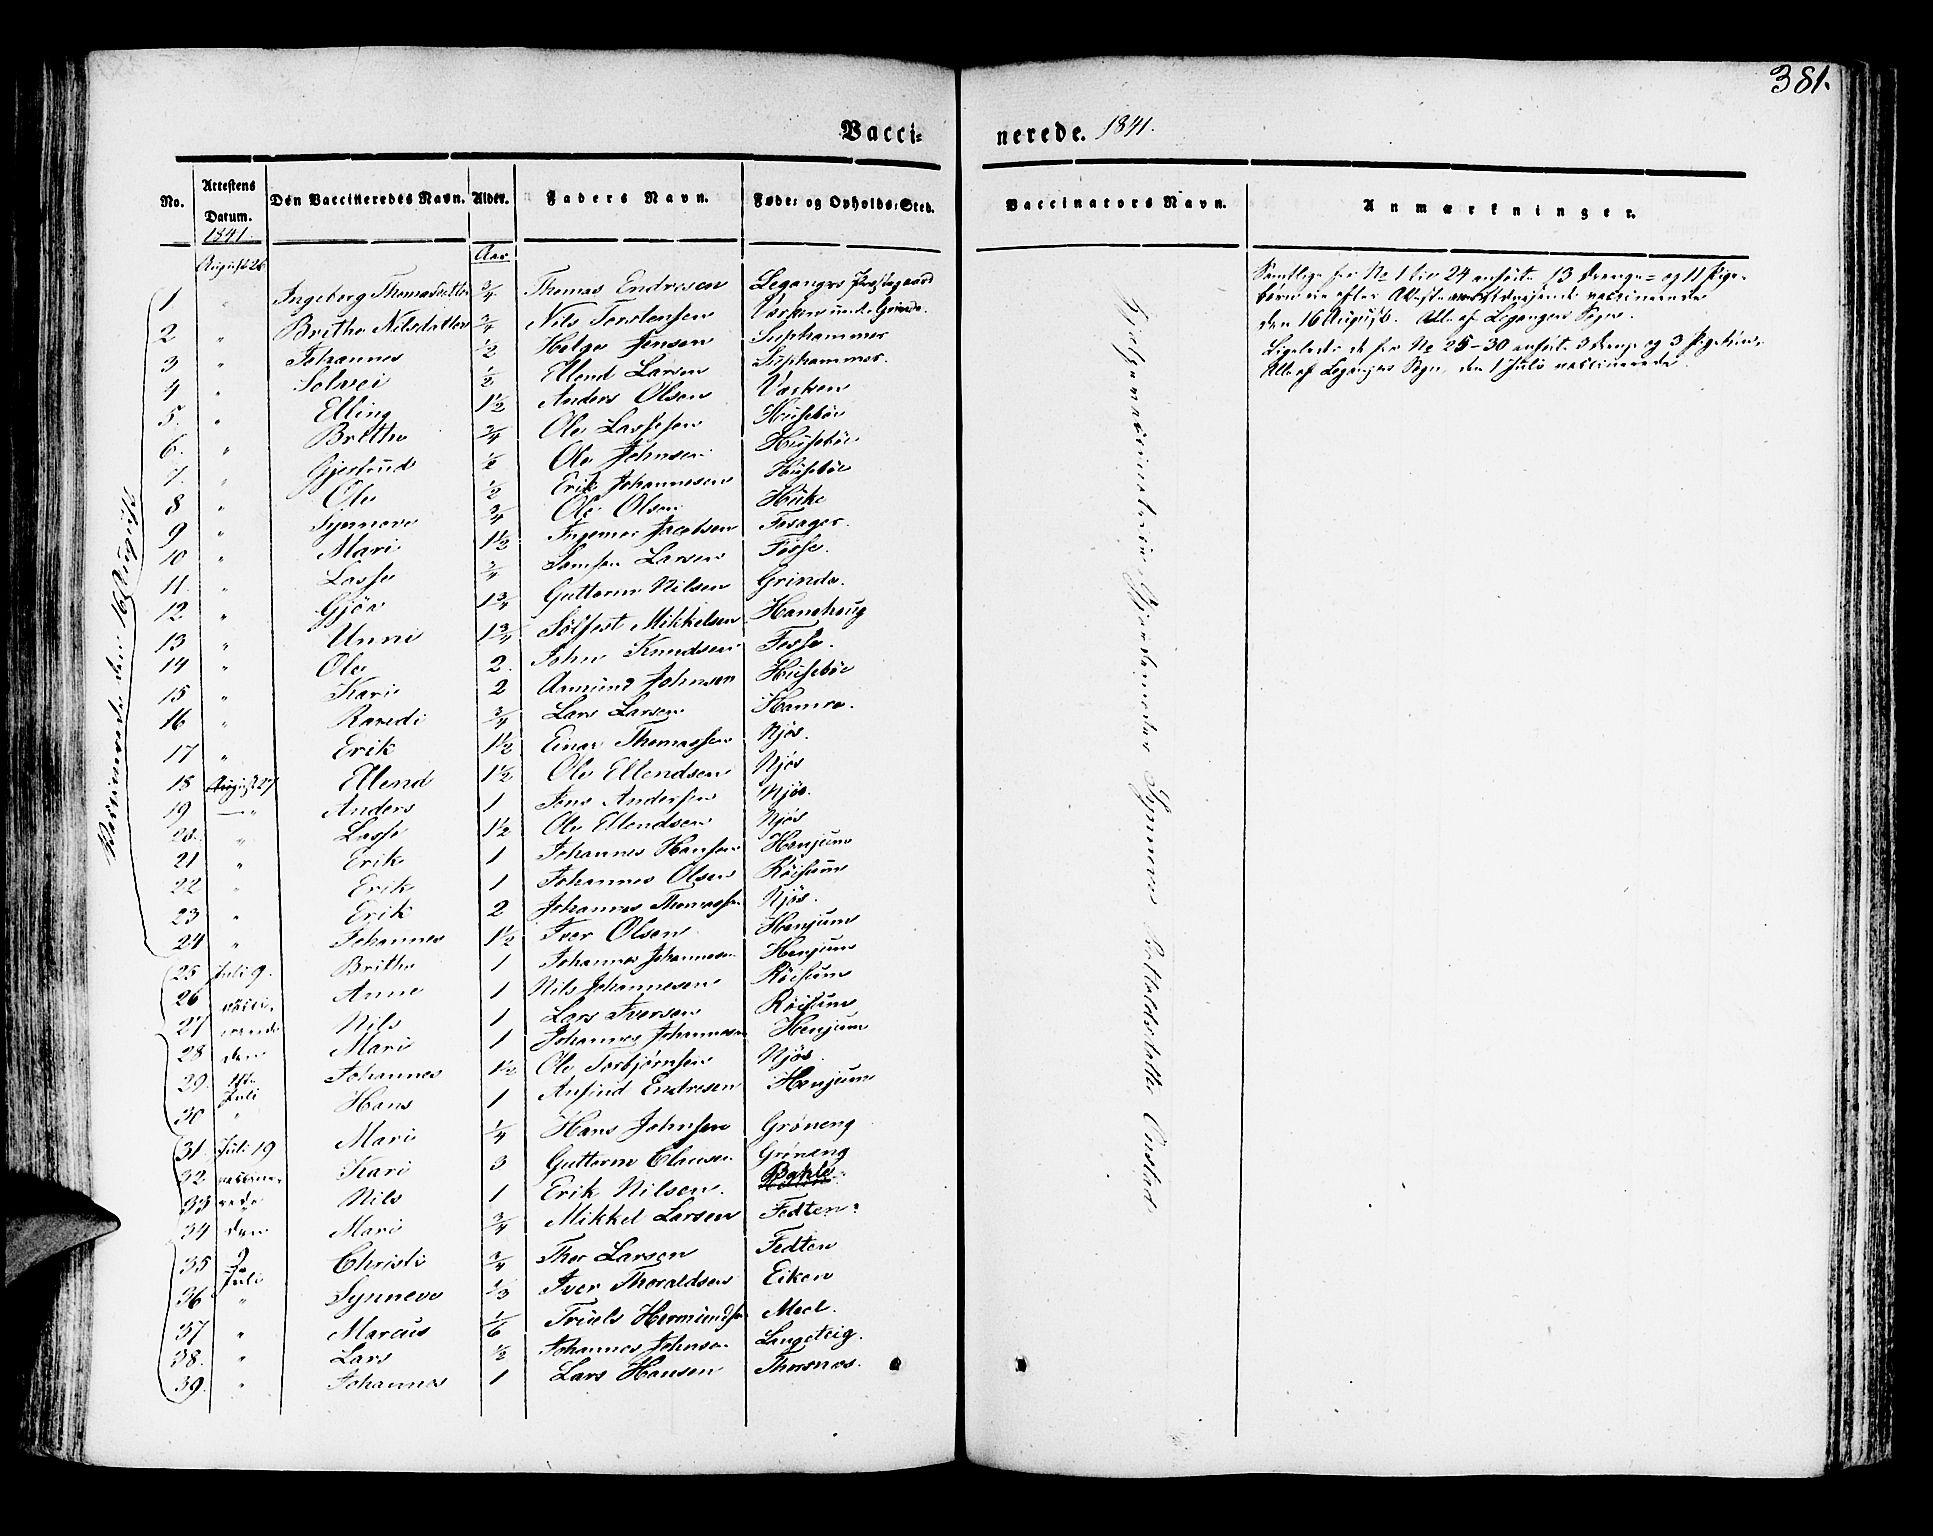 381.
Vacci-
nerede. 1841.
No. Attestens Datum. 1841. Den Vaccineredes Navn. Alder. Faders Navn. Føde- og Opholds-Sted.
Vaccinators Navn. Anmærkninger.
August 26 Aar
1 " Ingeborg Thomasdatter 3/4 Thomas Endresen Leganger Præstegaard
2 " Brithe Nilsdatter 3/4 Nils Torstensen under Grinde.
3 " Johannes 1/2 Helge Jensen Suphammer
4 " Solvei 1/2 Ellend Larsen Suphammer.
5. " Elling 1 1/2 Anders Olsen
6. " Brithe 3/4 Ole Lassesen Husebøe
7. " Gjertrud 1/2 Ole Johnsen Husebøe
8 " Ole 1/2 Erik Johannesen Husebøe
9 " Synneve 3/4 Ole Olsen Huke
10 " Mari 1 1/2 Ingemer Jacobsen Fosager.
11. " Lasse 3/4 Samsen Larsen Fosse.
12 " Gjøa 1 3/4 Guttorm Nilsen Grinde.
13 " Unni 1 3/4 Sølfest Mikkelsen Hanehoug
14 " Ole 2. John Knudsen Fosse.
15 " Kari 2 Amund Johnsen Husebøe
16 " Randi 3/4 Lars Larsen Hamre.
17 " Erik 1 1/2 Einar Thomassen Njøs.
18 August 27 Ellend 1 1/2 Ole Ellendsen Njøs
19 " Anders 1 Jens Andersen Njøs.
20. " Lasse 1 1/2 Ole Ellendsen Njøs
21 " Erik 1 Johannes Hansen Henjum
22 " Erik 1 Johannes Olsen Røisum
23 " Erik 2 Johannes Thomassen Njøs.
24 " Johannes 1 1/2 Iver Olsen Henjum
Vaccinerede den 16 August
25 Juli 9. Brithe 1 Johannes Johannesen Henjum
26 vacci- Anne 1 Nils Johannesen Røisum
27 nerede Nils 1 Lars Iversen Røisum
28 den Mari 1 Johannes Johannesen Henjum
29. 1ste Johannes 1 1/2 Ole Torbjørnsen Njøs.
30 Juli Hans 1 Anfind Endresen Henjum
31. Juli 19 Mari 1/4 Hans Johnsen Grøneng
32 vaccine- Kari 3 Guttorm Clausen Grøneng
33 rede Nils 1 Erik Nilsen.
34 den Mari 3/4 Mikkel Larsen Fedten.
35 9 Christi 3/4 Thor Larsen Fedten
36 Juli Synneve 1/3 Iver Thoraldsen Eiken
37 " Marcus 1/6 Truels Hermundsen Mæl.
38. " Lars 1/2 Johannes Johnsen Langeteig.
39. " Johannes 1 Lars Hansen Thorsnes.
Synneve Onstad
Samtlige for No 1 til 24 anførte 13 Drenge- og 11 Pige-
børn ere efter vaccinerede
den 16 August. Alle af Leganger Sogn.
Ligeledes de for No 25-30 anførte 3 Drenge og 3 Pigebørn,
Alle af Leganger Sogn, den 1 Juli vaccinerede.